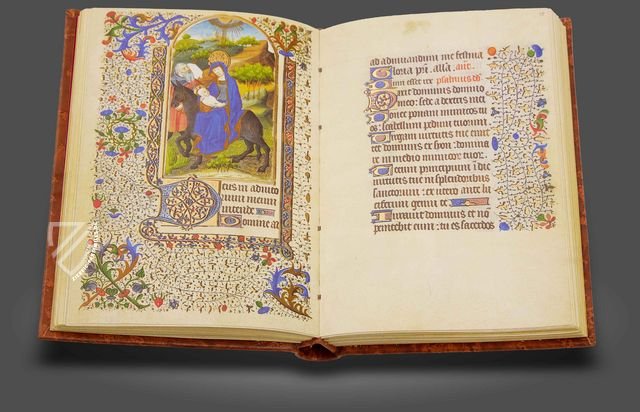 Deus in adiuto
rium meum
intende
Domine ad
ad adiuvandum me festina
Gloria pri. alla. ant.
psalmus dd.
Dixit dominus domino
meo: sede a dextris mei
Donec ponam inimicos tu
os: scabellum pedum tuorum
Virgam virtutis tue emit
tet dominus ex sion: domina
re in medio inimicor tuor.
Tecum principium i die
virtutis tue in splendoribus
sanctorum: ex utero ante lu
ciferum genui te
Iuravit dominus et no
penitebit eum: tu es sacerdos